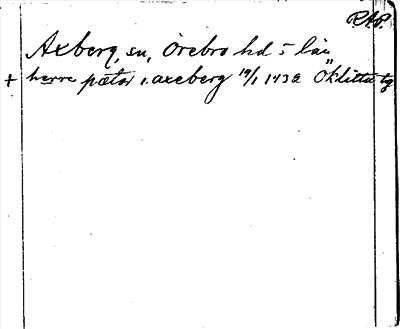 RAP.
Axberg, sn, Örebro hd o län
+ herre pætar i axeberg 19/1 1432